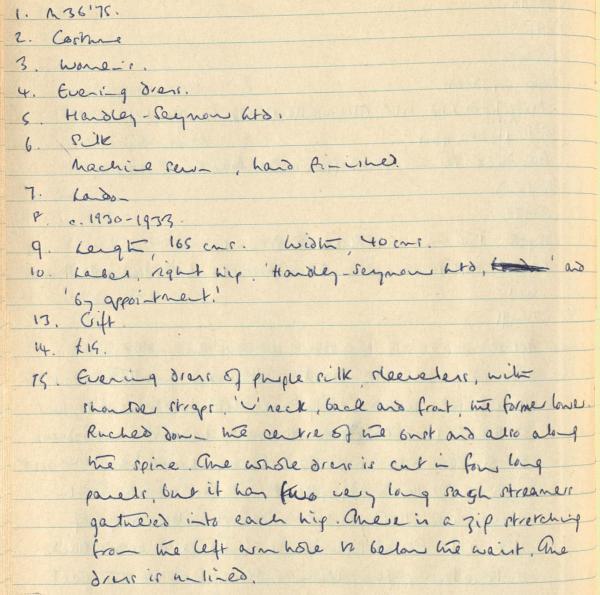 1. M36'75.
2. Costume
3. Women's.
4. Evening dress.
5. Handley-Seymour Ltd.
6. Silk
Machine sewn, hand finished.
7. London
8. c.1930-1933.
9. Length, 165 cms. Width, 40 cms.
10. Label, right hip. 'Handley-Seymour Ltd, ' and
'by appointment.'
13. Gift.
14. £15.
15. Evening dress of purple silk, sleeveless, with
shoulder straps, 'V' neck, back and front, the former lower.
Ruched down the centre of the bust and also along
the spine. The whole dress is cut in four long
panels, but it has two very long sash streamers
gathered into each hip. There is a zip stretching
from the left arm hole to below the waist. The
dress is unlined.